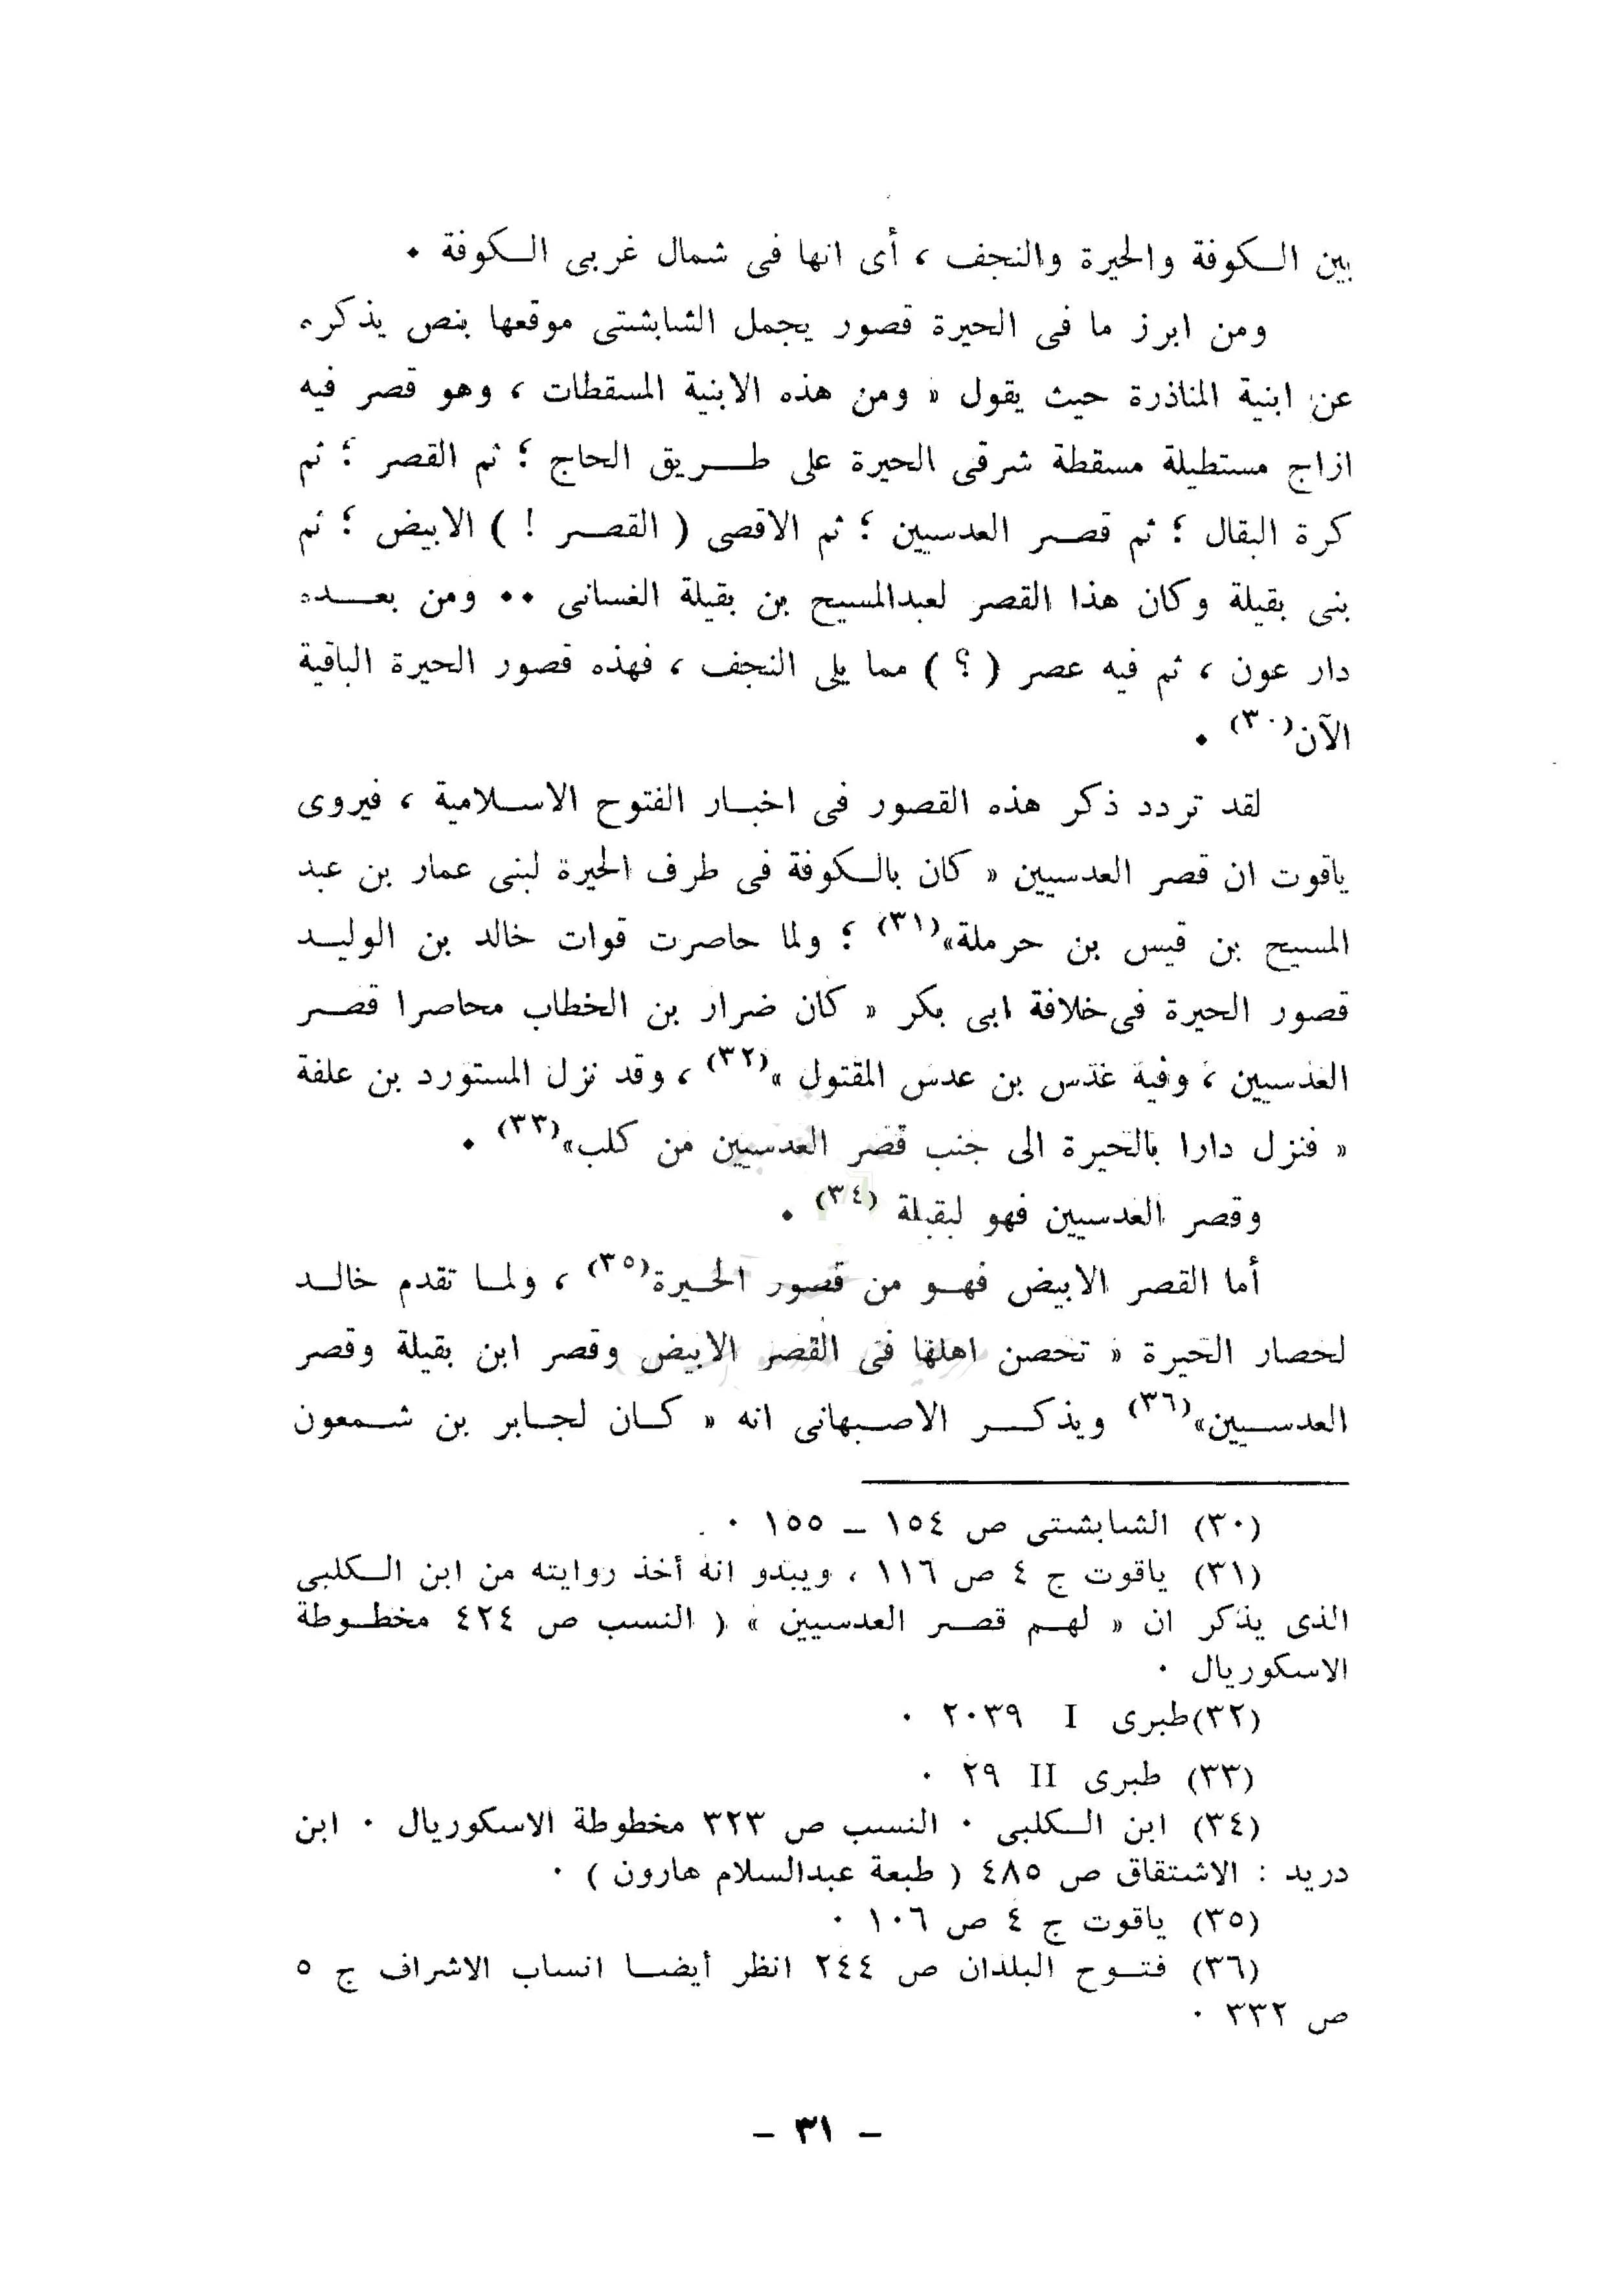 بين الكوفة والحيرة والنجف ، أى انها فى شمال غربى الكوفة ٠
ومن ابرز ما فى الحيرة قصور يجمل الشابشتى موقعها بنص يذكره
عن ابنية المناذرة حيث يقول « ومن هذه الابنية المسقطات ، وهو قصر فيه
ازاج مستطيلة مسقطة شرقى الحيرة على طريق الحاج ؛ ثم القصر ؛ ثم
كرة البقال ؛ ثم قصر العدسيين ؛ ثم الاقصى ( القصر ! ) الابيض ؛ ثم
بنى بقيلة وكان هذا القصر لعبدالمسيح بن بقيلة الغسانى ٠٠ ومن بعده
دار عون ، ثم فيه عصر ( ؟ ) مما يلى النجف ، فهذه قصور الحيرة الباقية
الآن(٣٠) ٠
لقد تردد ذكر هذه القصور فى اخبار الفتوح الاسلامية ، فيروى
ياقوت ان قصر العدسيين « كان بالكوفة فى طرف الحيرة لبنى عمار بن عبد
المسيح بن قيس بن حرملة»(٣١) ؛ ولما حاصرت قوات خالد بن الوليد
قصور الحيرة فى خلافة ابى بكر « كان ضرار بن الخطاب محاصرا قصر
العدسيين ، وفيه عدس بن عدس المقتول »(٣٢) ، وقد نزل المستورد بن علفة
« فنزل دارا بالحيرة الى جنب قصر العدسيين من كلب»(٣٣) ٠
وقصر العدسيين فهو لبقيلة (٣٤) ٠
أما القصر الابيض فهو من قصور الحيرة(٣٥) ، ولما تقدم خالد
لحصار الحيرة « تحصن اهلها فى القصر الابيض وقصر ابن بقيلة وقصر
العدسيين»(٣٦) ويذكر الاصبهانى انه « كان لجابر بن شمعون
(٣٠) الشابشتى ص ١٥٤ ــ ١٥٥ ٠
(٣١) ياقوت ج ٤ ص ١١٦ ، ويبدو انه أخذ روايته من ابن الكلبى
الذى يذكر ان « لهم قصر العدسيين » ( النسب ص ٤٢٤ مخطوطة
الاسكوريال ٠
(٣٢)طبرى I ٢٠٣٩ ٠
(٣٣) طبرى II ٢٩ ٠
(٣٤) ابن الكلبى ٠ النسب ص ٣٢٣ مخطوطة الاسكوريال ٠ ابن
دريد : الاشتقاق ص ٤٨٥ ( طبعة عبدالسلام هارون ) ٠
(٣٥) ياقوت ج ٤ ص ١٠٦ ٠
(٣٦) فتوح البلدان ص ٢٤٤ انظر أيضا انساب الاشراف ج ٥
ص ٣٣٢ ٠
– ٣١ –